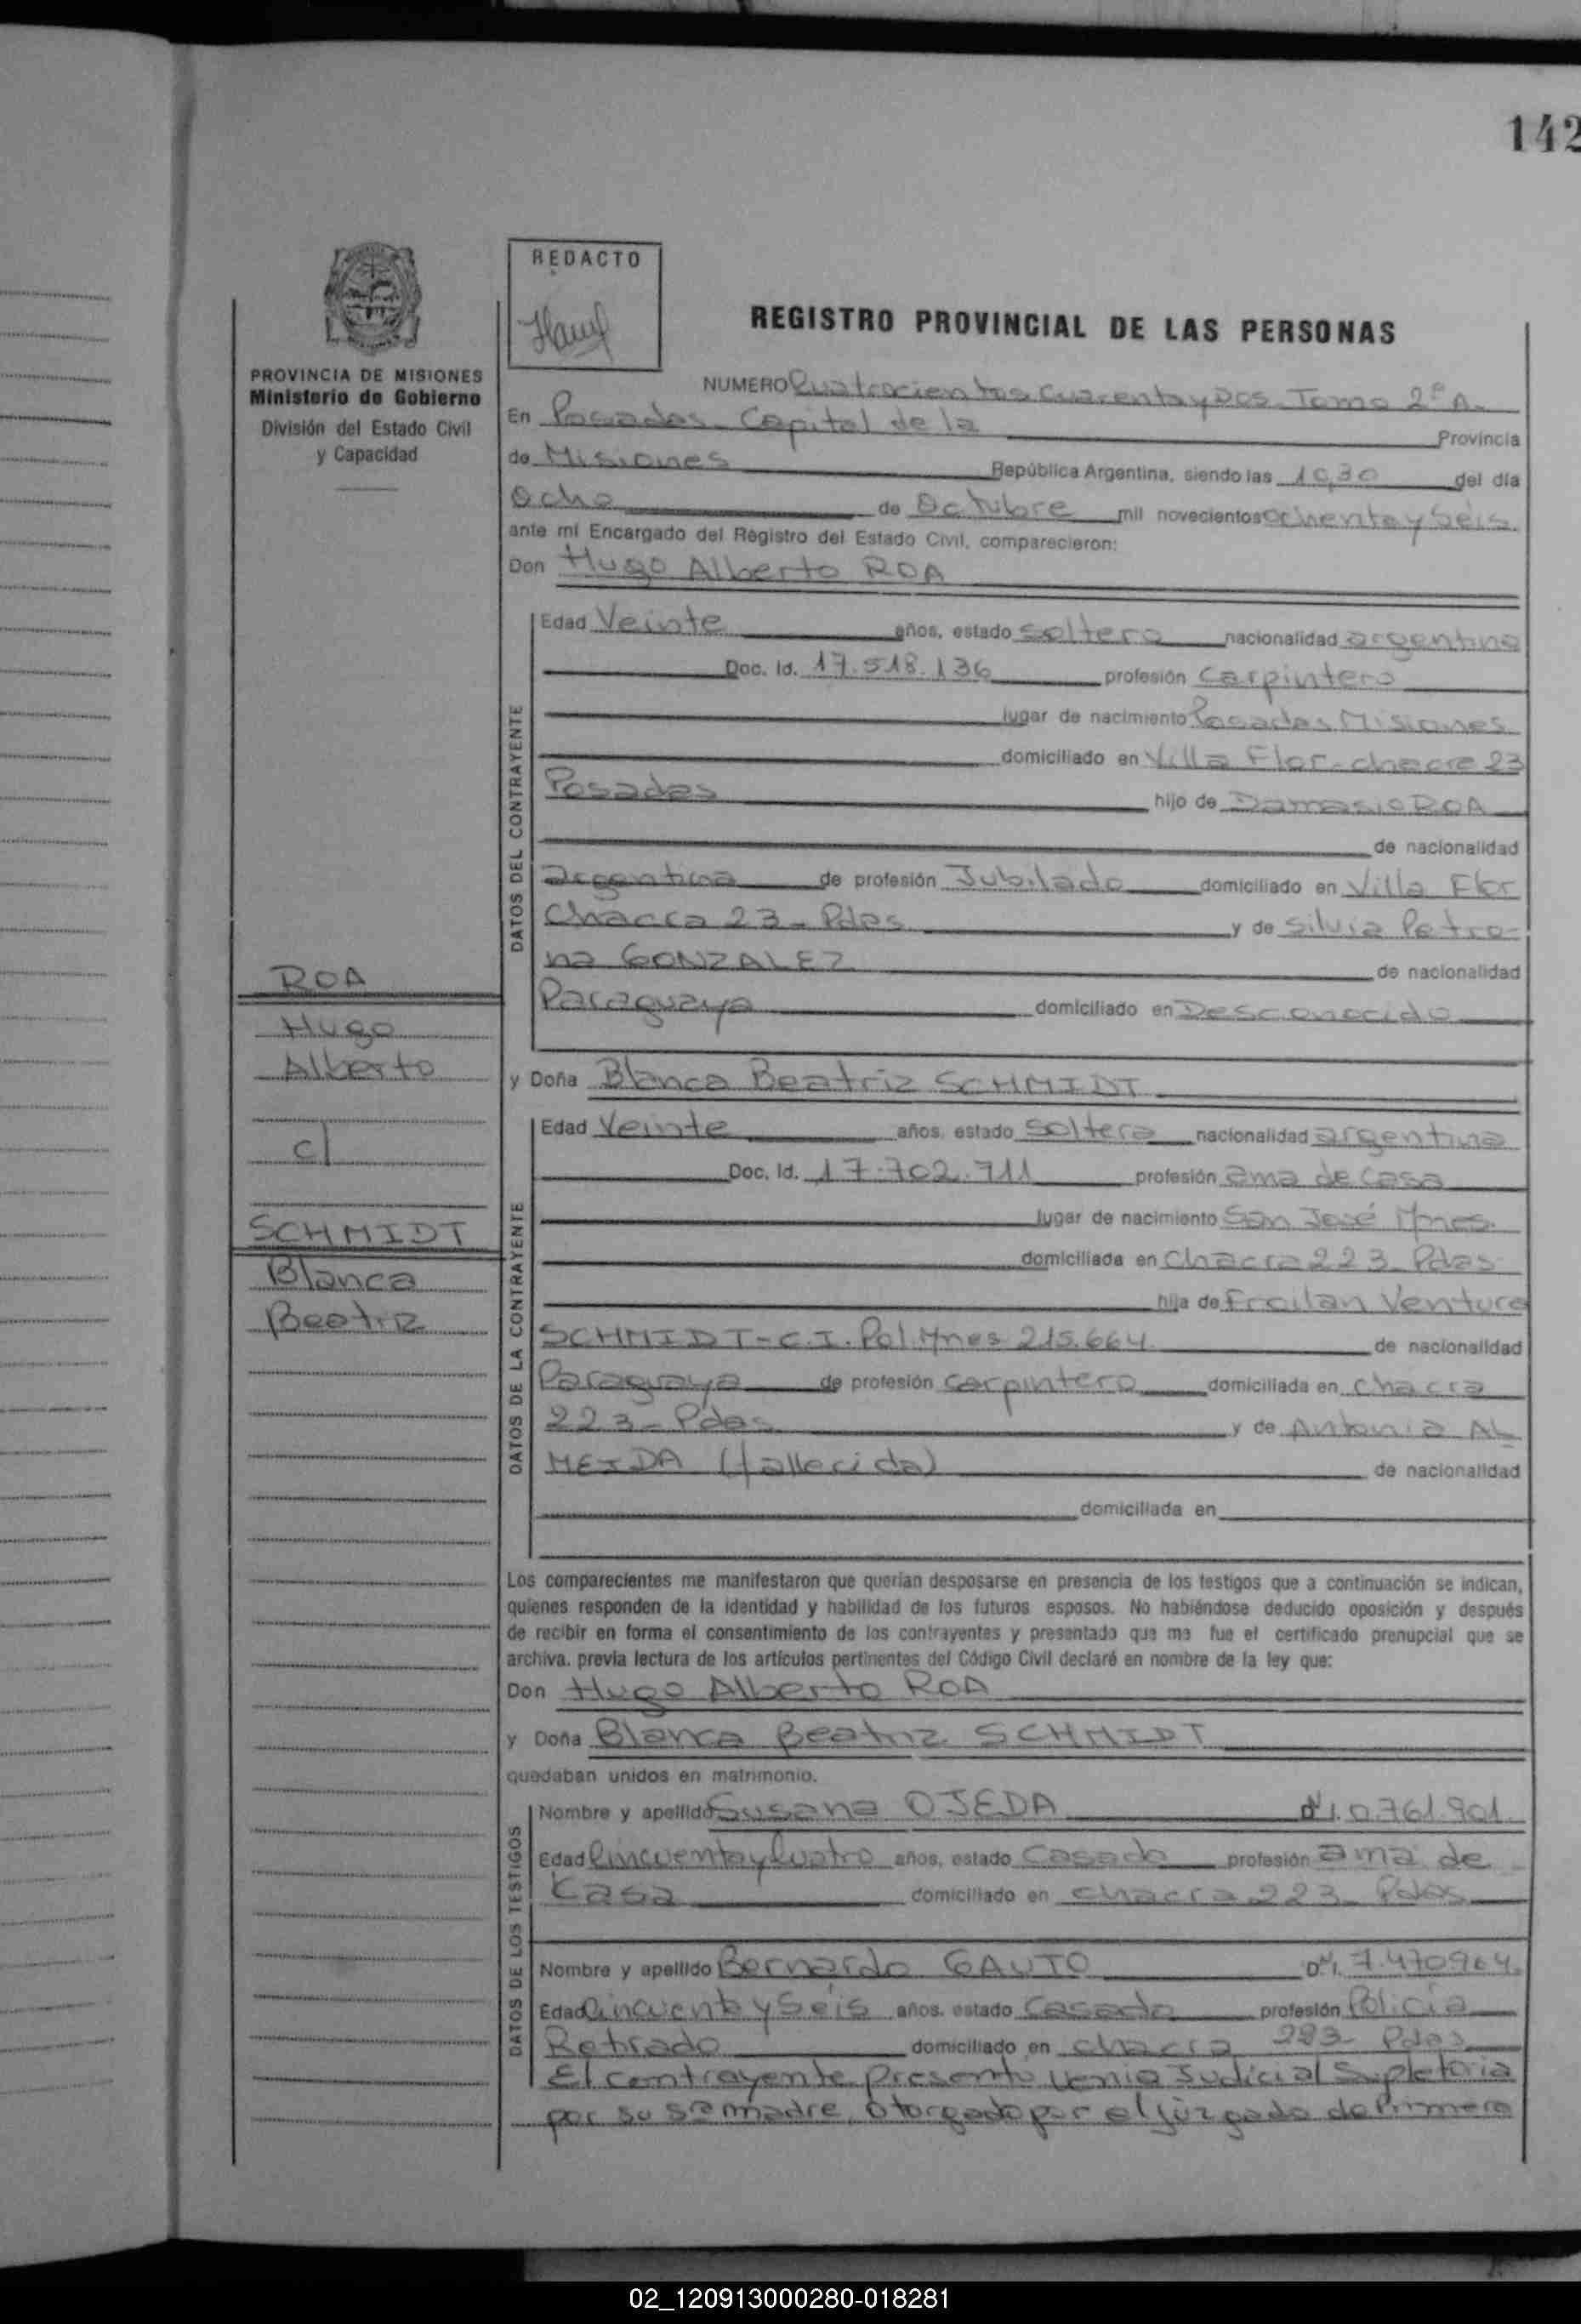 142
REDACTO
REGISTRO PROVINCIAL DE LAS PERSONAS
PROVINCIA DE MISIONES
Ministerio de Gobierno
División del Estado Civil
y Capacidad
NUMERO Cuatrocientos Cuarenta y Dos Tomo 2º A.
En Posadas Capital de la Provincia
de Misiones República Argentina, siendo las 10,30 del día
Ocho de Octubre mil novecientos ochenta y Seis
ante mí Encargado del Registro del Estado Civil, comparecieron:
Don Hugo Alberto ROA
DATOS DEL CONTRAYENTE
Edad Veinte años, estado soltero nacionalidad argentina
Doc. Id. 17.518.136 profesión Carpintero
lugar de nacimiento Posadas Misiones
domiciliado en Villa Flor-chacra 23
Posadas hijo de Damasio ROA
de nacionalidad
argentina de profesión Jubilado domiciliado en Villa Flor
Chacra 23- Pdas y de Silvia Petro-
na GONZALEZ de nacionalidad
Paraguaya domiciliado en Desconocido
ROA
Hugo
Alberto
c/
SCHMIDT
Blanca
Beatriz
y Doña Blanca Beatriz SCHMIDT
DATOS DE LA CONTRAYENTE
Edad Veinte años, estado Soltera nacionalidad argentina
Doc. Id. 17.702.711 profesión ama de casa
lugar de nacimiento San José Mnes.
domiciliada en Chacra 223 Pdas
hija de Froilan Ventura
SCHMIDT-C.I. Pol. Mnes 215.664 de nacionalidad
Paraguaya de profesión carpintero domiciliada en chacra
223- Pdas y de Antonia AL
MEIDA (fallecida) de nacionalidad
domiciliada en
Los comparecientes me manifestaron que querían desposarse en presencia de los testigos que a continuación se indican,
quienes responden de la identidad y habilidad de los futuros esposos. No habiéndose deducido oposición y después
de recibir en forma el consentimiento de los contrayentes y presentado que me fue el certificado prenupcial que se
archiva, previa lectura de los artículos pertinentes del Código Civil declaré en nombre de la ley que:
Don Hugo Alberto ROA
y Doña Blanca Beatriz SCHMIDT
quedaban unidos en matrimonio.
DATOS DE LOS TESTIGOS
Nombre y apellido Susana OJEDA DNI. 0.761.901.
Edad Cincuenta y Cuatro años, estado Casada profesión ama de
Casa domiciliado en chacra 223- Pdas
Nombre y apellido Bernardo GAUTO DNI. 7.470964.
Edad Cincuenta y Seis años, estado Casado profesión Policia
Retirado domiciliado en chacra 223- Pdas
El contrayente presento Venia Judicial Supletoria
por su Sra madre, otorgado por el juzgado de Primera
02_120913000280-018281